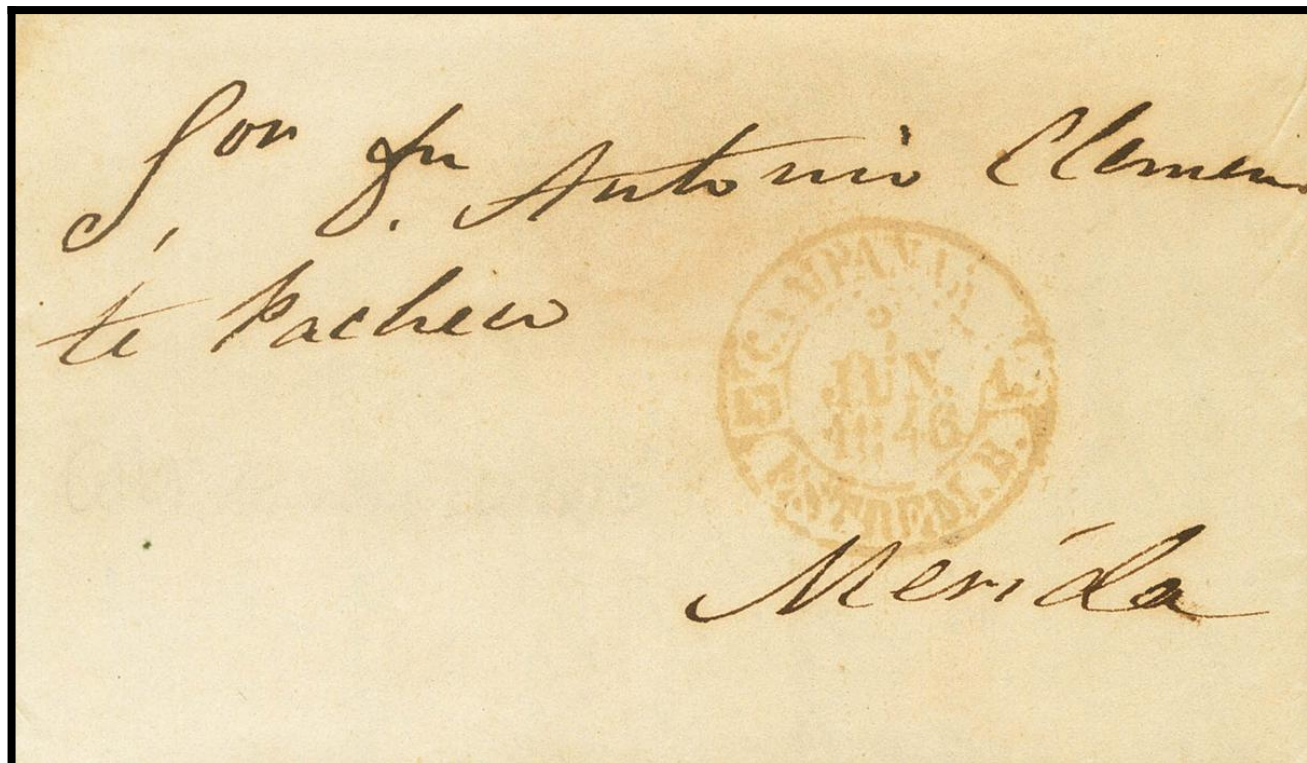 Sor Dn Antonio Clemen
te Pacheco
CAMPANAR
JUN.
1846
ESTREM. B.
Merida